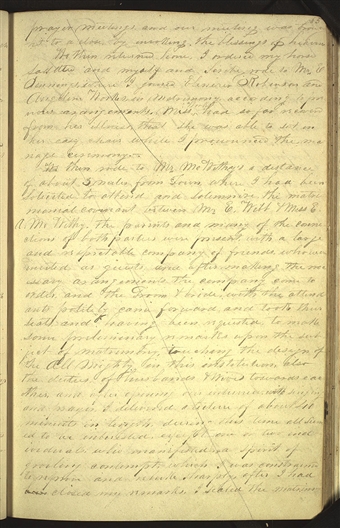 prayer meetings and our meeting was
to a close by invoking the blessings of heaven
We then returned home, I ordered my horse
saddled and myself and rode to Mr
where I joined Ebenezer Robinson and
Angeline Works in matrimony according to
arrangements, Miss had so far recovered
from her illness, that she was able to sit in
her easy chair while I pronounced the mar
riage ceremony.
We then rode to Mr. McWithy's a distance
of about 3 miles from Town, where I had been
Solicited to attend and solemnize the matri
monial covenant betwen Mr. E. Webb & Miss E.
A. McWithy. The parents and many of the connec
tions of both parties were present, with a large
and respectable company of friends who were
invited as guests and after making the ne
cessary arrangements the company came to
order, and the Groom & bride, with the attend
ants politely came forward, and took their
seats and having been requested, to make
some preliminary remarks upon the sub
ject of matrimony, touching the design of
the All Mighty in this institution, also
the duties of husbands & wives towards each
other and after opening our interview with singing
and prayer I delivered a lecture of about 40
minuits in length, during this time all seem
ed to be interested, except one or two indi
viduals, who manifested a spirit of
groveling contempt, which I was constrained
to reprove and rebuke sharply, after I had
closed my remarks, I sealed the matrimony